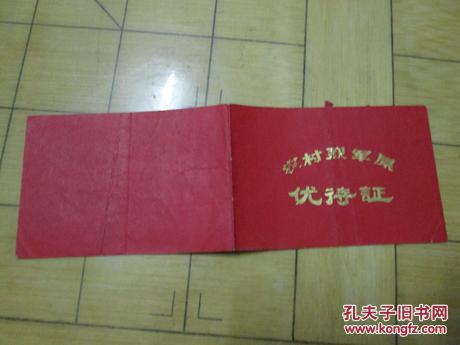 农村军属
优待证
孔夫子旧书网
www.kongfz.com